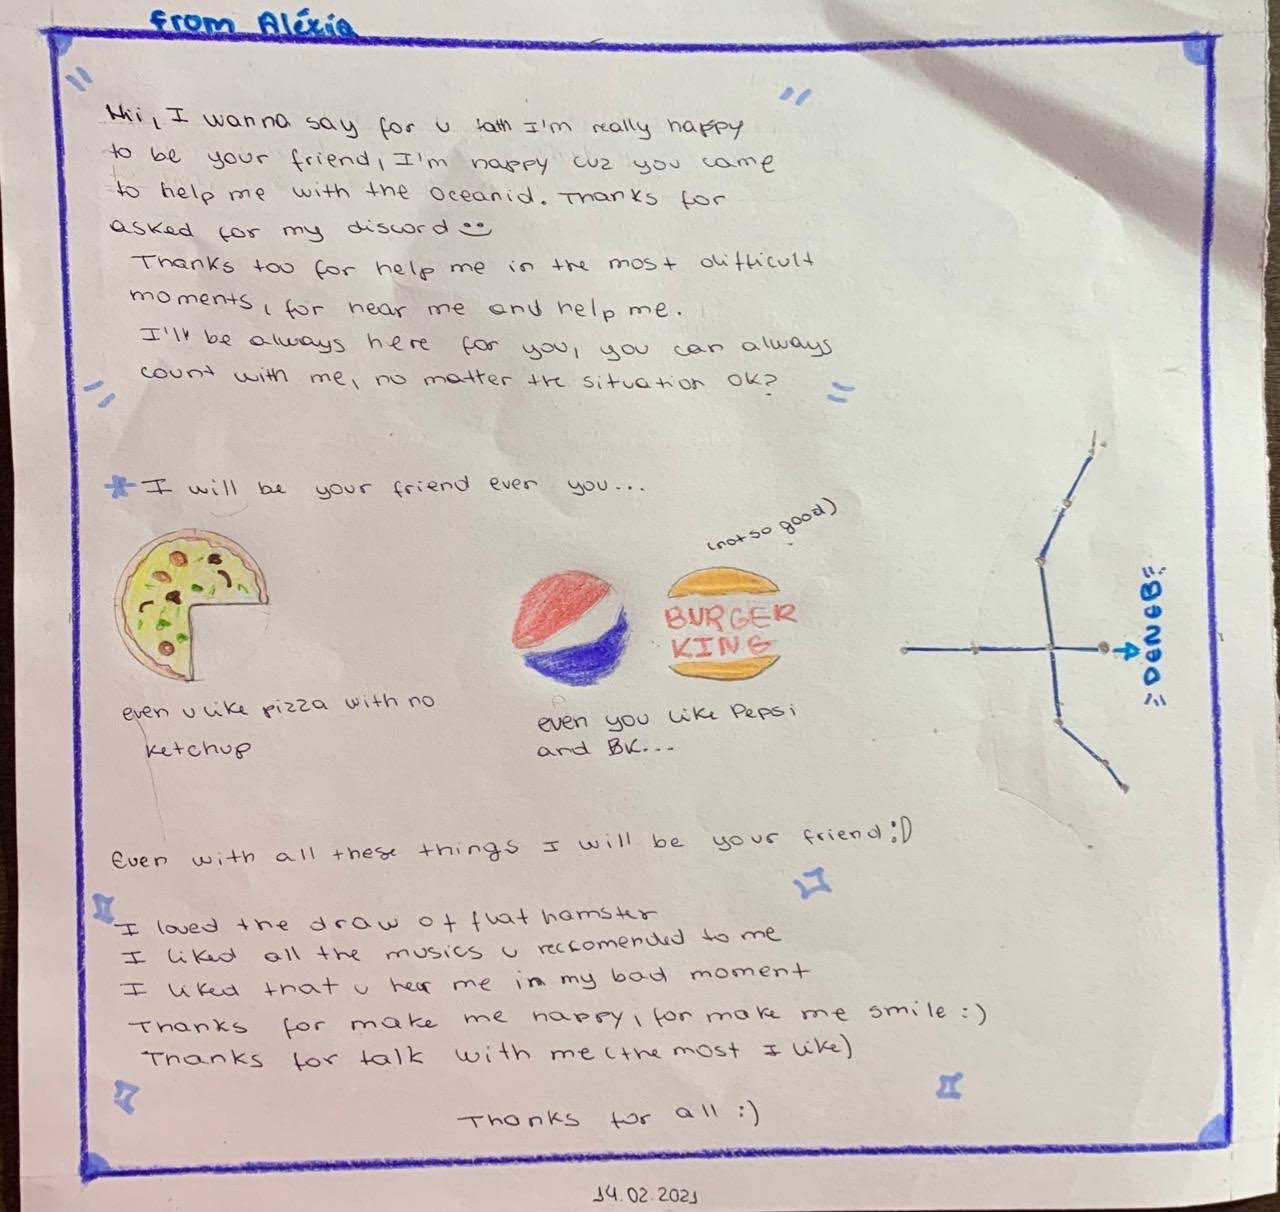 from Aléxia
Hii, I wanna say for u tath I'm really happy
to be your friend, I'm happy cuz you came
to help me with the Oceanid. Thanks for
asked for my discord
Thanks too for help me in the most difficult
moments, for hear me and help me.
I'll be always here for you, you can always
count with me, no matter the situation ok?
* I will be your friend even you...
(not so good)
BURGER
KING
even u like pizza with no
ketchup
even you like Pepsi
and BK...
=DENEB=
Even with all these things I will be your friend :D
I loved the draw of flat hamster
I liked all the musics u reccomended to me
I liked that u hear me in my bad moment
Thanks for make me happy, for make me smile :)
Thanks for talk with me (the most I like)
Thanks for all :)
14.02.2021